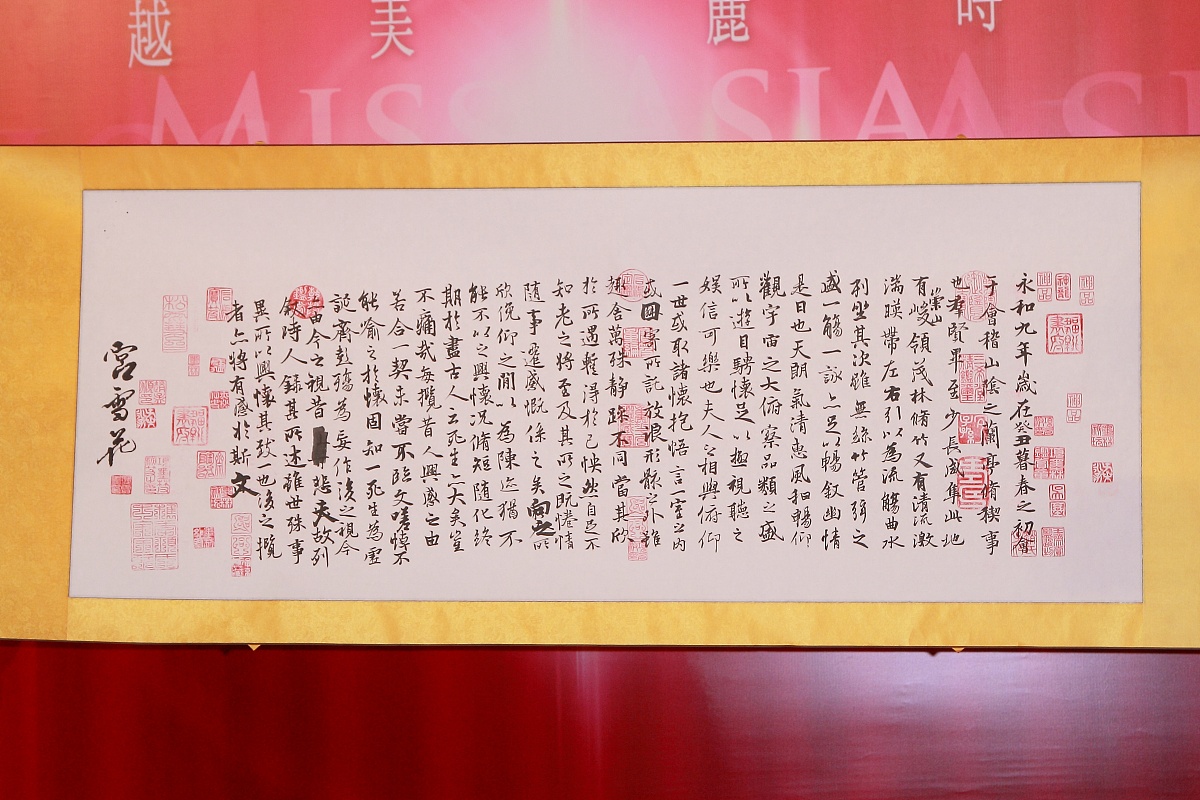 越 美 時
MISS ASIA
永和九年歲在癸丑暮春之初會
于會稽山陰之蘭亭脩禊事
也羣賢畢至少長咸集此地
有崇山峻領茂林脩竹又有清流激
湍暎帶左右引以為流觴曲水
列坐其次雖無絲竹管弦之
盛一觴一詠亦足以暢敘幽情
是日也天朗氣清惠風和暢仰
觀宇宙之大俯察品類之盛
所以遊目騁懷足以極視聽之
娛信可樂也夫人之相與俯仰
一世或取諸懷抱悟言一室之內
或因寄所託放浪形骸之外雖
趣舍萬殊靜躁不同當其欣
於所遇暫得於己怏然自足不
知老之將至及其所之既惓情
隨事遷感慨係之矣向之所
欣俛仰之閒以為陳迹猶不
能不以之興懷況脩短隨化終
期於盡古人云死生亦大矣豈
不痛哉每攬昔人興感之由
若合一契未嘗不臨文嗟悼不
能喻之於懷固知一死生為虛
誕齊彭殤為妄作後之視今
亦由今之視昔悲夫故列
敘時人錄其所述雖世殊事
異所以興懷其致一也後之攬
者亦將有感於斯文
宮雪花